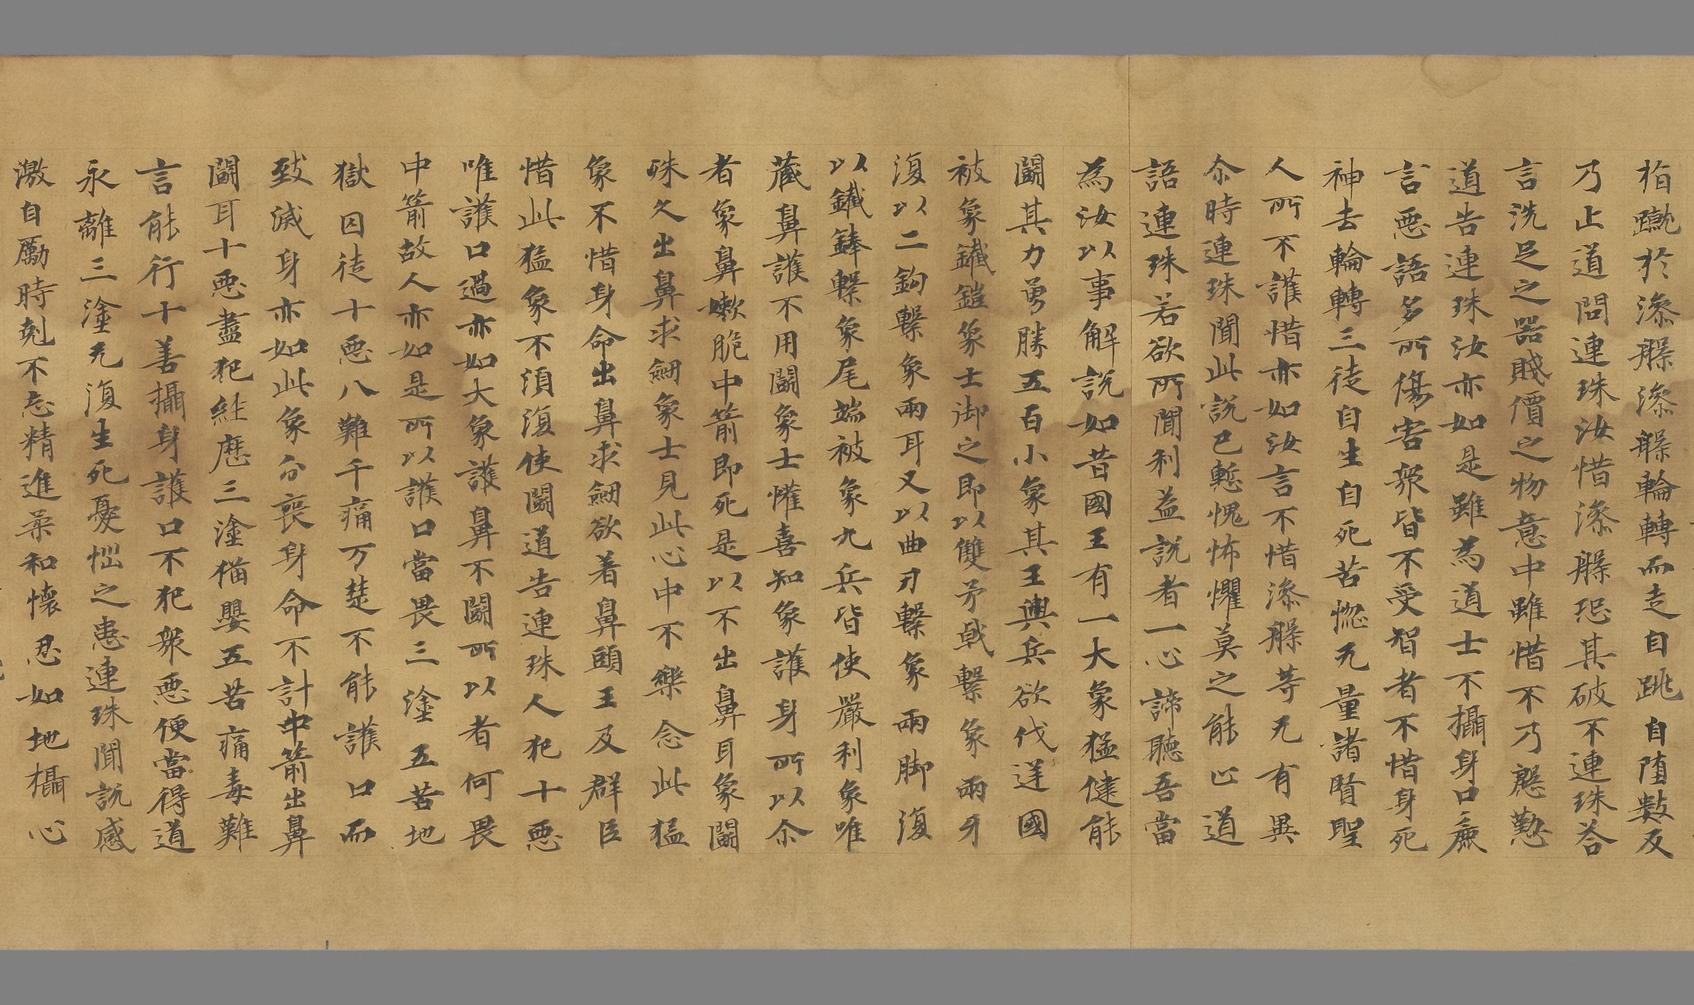 指蹴於澡槃澡槃輪轉而走自跳自墮數反
乃止道問連珠汝惜澡槃恐其破不連珠荅
言洗足之器賤價之物意中雖惜不乃慇懃
道告連珠汝亦如是雖為道士不攝身口麁
言惡語多所傷害衆皆不受智者不惜身死
神去輪轉三徒自生自死苦惱无量諸賢聖
人所不護惜亦如汝言不惜澡槃等无有異
尒時連珠聞此說已慙愧怖懼莫之能止道
語連珠若欲所聞利益說者一心諦聽吾當
為汝以事解說如昔國王有一大象猛健能
鬪其力勇勝五百小象其王輿兵欲伐逆國
被象鐵鎧象士御之即以雙矛戟繫象兩牙
復以二鉤繫象兩耳又以曲刃繫象兩脚復
以鐵鋒繫象尾端被象九兵皆使嚴利象唯
藏鼻護不用鬪象士懽喜知象護身所以尒
者象鼻嫰脆中箭即死是以不出鼻耳象鬪
殊久出鼻求劒象士見此心中不樂念此猛
象不惜身命出鼻求劒欲着鼻頭王及群臣
惜此猛象不須復使鬪道告連珠人犯十惡
唯護口過亦如大象護鼻不鬪所以者何畏
中箭故人亦如是所以護口當畏三塗五苦地
獄囚徒十惡八難千痛万楚不能護口而
致滅身亦如此象分喪身命不計中箭出鼻
鬪耳十惡盡犯經歷三塗猫嬰五苦痛毒難
言能行十善攝身護口不犯衆惡便當得道
永離三塗无復生死憂惱之患連珠聞說感
激自勵時剋不忘精進柔和懷忍如地攝心